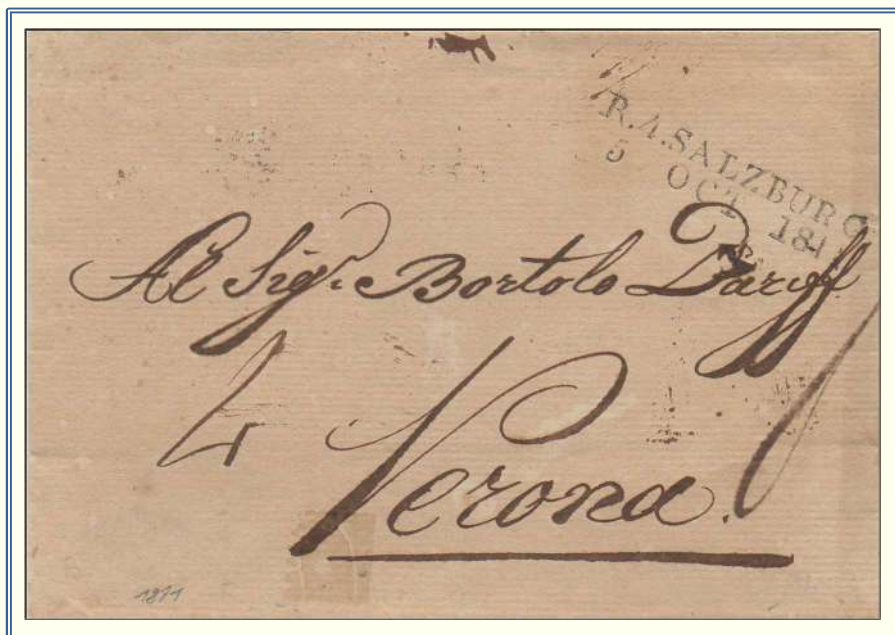 R.4.SALZBURG
5 OCT 181
Al Sigr. Bortolo
4
Verona.
1811